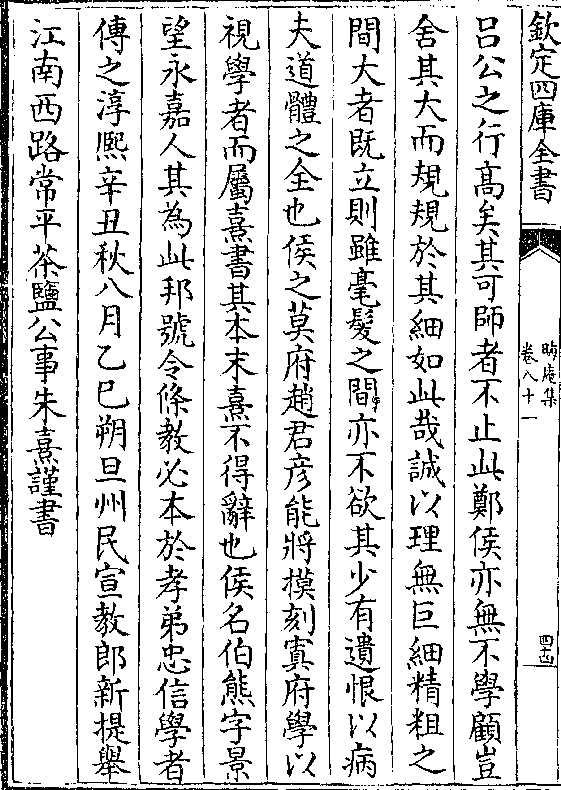 欽定四庫全書
晦庵集
卷八十一
四十四
吕公之行髙矣其可師者不止此鄭侯亦無不學顧豈
舍其大而規規於其細如此哉誠以理無巨細精粗之
間大者既立則雖毫髮之間亦不欲其少有遺恨以病
夫道體之全也侯之莫府趙君彦能將摸刻寘府學以
視學者而屬熹書其本末熹不得辭也侯名伯熊字景
望永嘉人其為此邦號令條教必本於孝弟忠信學者
傳之淳熙辛丑秋八月乙巳朔旦州民宣教郎新提舉
江南西路常平茶鹽公事朱熹謹書